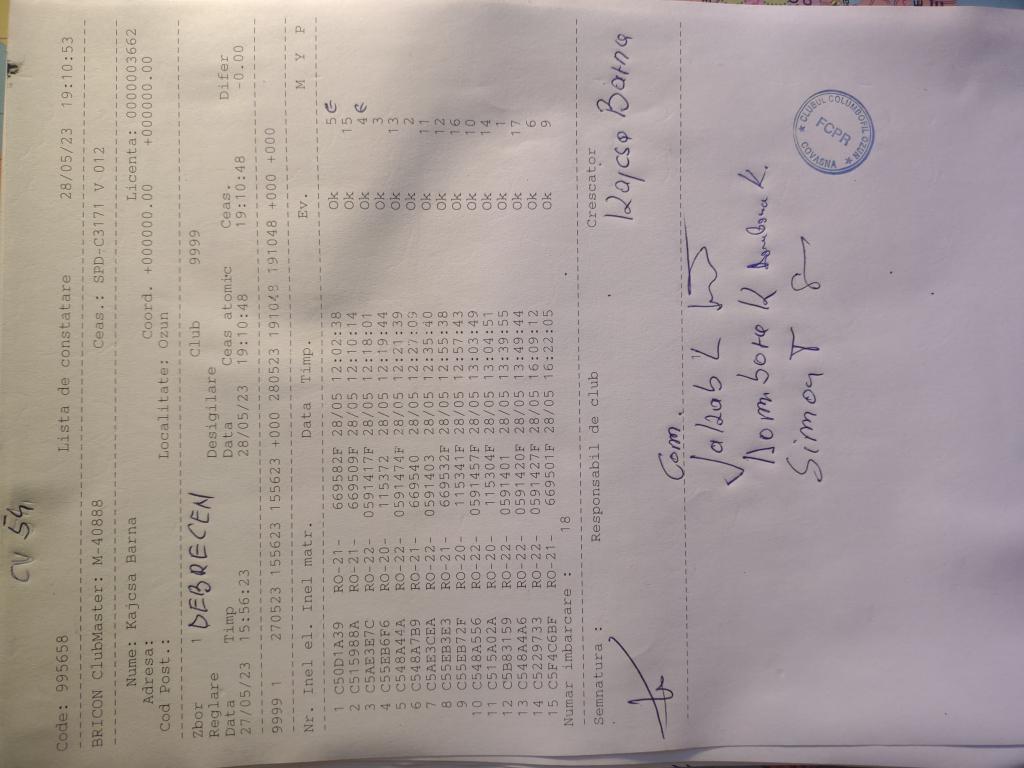 CV 54
Code: 995658 Lista de constatare 28/05/23 19:10:53
BRICON ClubMaster: M-40888 Ceas.: SPD-C3171 V 012
Nume: Kajcsa Barna Licenta: 0000003662
Adresa: Coord. +000000.00 +0000000.00
Cod Post.: Localitate: Ozun
Zbor 1 DEBRECEN Club 9999
Reglare Desigilare
Data Timp Data Ceas atomic Ceas. Difer
27/05/23 15:56:23 28/05/23 19:10:48 19:10:48 -0.00
9999 1 270523 155623 155623 +000 280523 191048 191048 +000 +000
Nr. Inel el. Inel matr. Data Timp. Ev. M Y P
1 C50D1A39 RO-21- 669582F 28/05 12:02:38 Ok 5 E
2 C515988A RO-21- 669509F 28/05 12:10:14 Ok 15
3 C5AE3E7C RO-22- 0591417F 28/05 12:18:01 Ok 4 E
4 C55EB6F6 RO-20- 115372 28/05 12:19:44 Ok 3
5 C548A44A RO-22- 0591474F 28/05 12:21:39 Ok 13
6 C548A7B9 RO-21- 669540 28/05 12:27:09 Ok 2
7 C5AE3CEA RO-22- 0591403 28/05 12:35:40 Ok 11
8 C55EB3E3 RO-21- 669532F 28/05 12:55:38 Ok 12
9 C55EB72F RO-20- 115341F 28/05 12:57:43 Ok 16
10 C548A556 RO-22- 0591457F 28/05 13:03:49 Ok 10
11 C515A02A RO-20- 115304F 28/05 13:04:51 Ok 14
12 C5B83159 RO-22- 0591401 28/05 13:39:55 Ok 1
13 C548A4A6 RO-22- 0591420F 28/05 13:49:44 Ok 17
14 C5229733 RO-22- 0591427F 28/05 16:09:12 Ok 6
15 C5F4C6BF RO-21- 669501F 28/05 16:22:05 Ok 9
Numar imbarcare : 18
Semnatura : Responsabil de club Crescator
Kajcsa Barna
Com.
Jalzab L
Domboне K Dombona K.
Simon T
CLUBUL COLUMBOFIL OZUN
FCPR
COVASNA